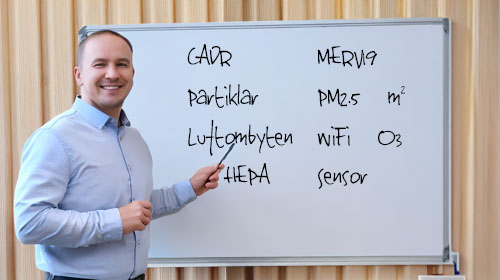 CADR MERV19
Partiklar PM2.5 m²
Luftombyten WiFi O3
HEPA sensor